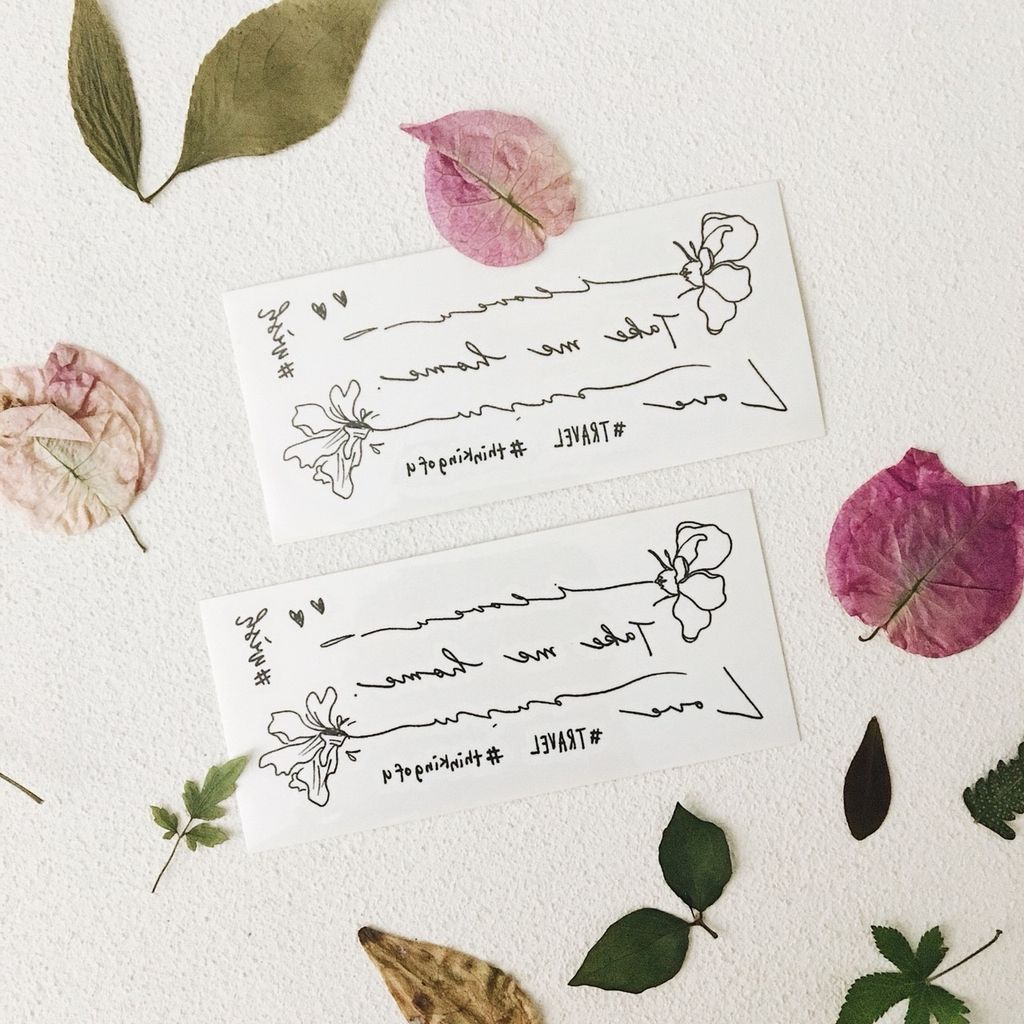 i love u
Take me home.
Love
#TRAVEL #thinkingofu
i love u
Take me home.
Love
#TRAVEL #thinkingofu